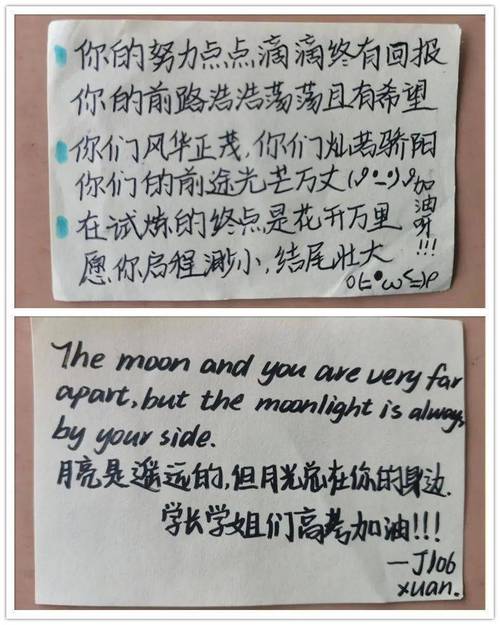 你的努力点点滴滴终有回报
你的前路浩浩荡荡且有希望
你们风华正茂,你们灿若骄阳
你们的前途光芒万丈(ง •̀_•́)ง加油呀!!!
在试炼的终点是花开万里
愿你启程渺小,结尾壮大
The moon and you are very far
apart, but the moonlight is always
by your side.
月亮是遥远的,但月光总在你的身边.
学长学姐们高考加油!!!
—J106
xuan.